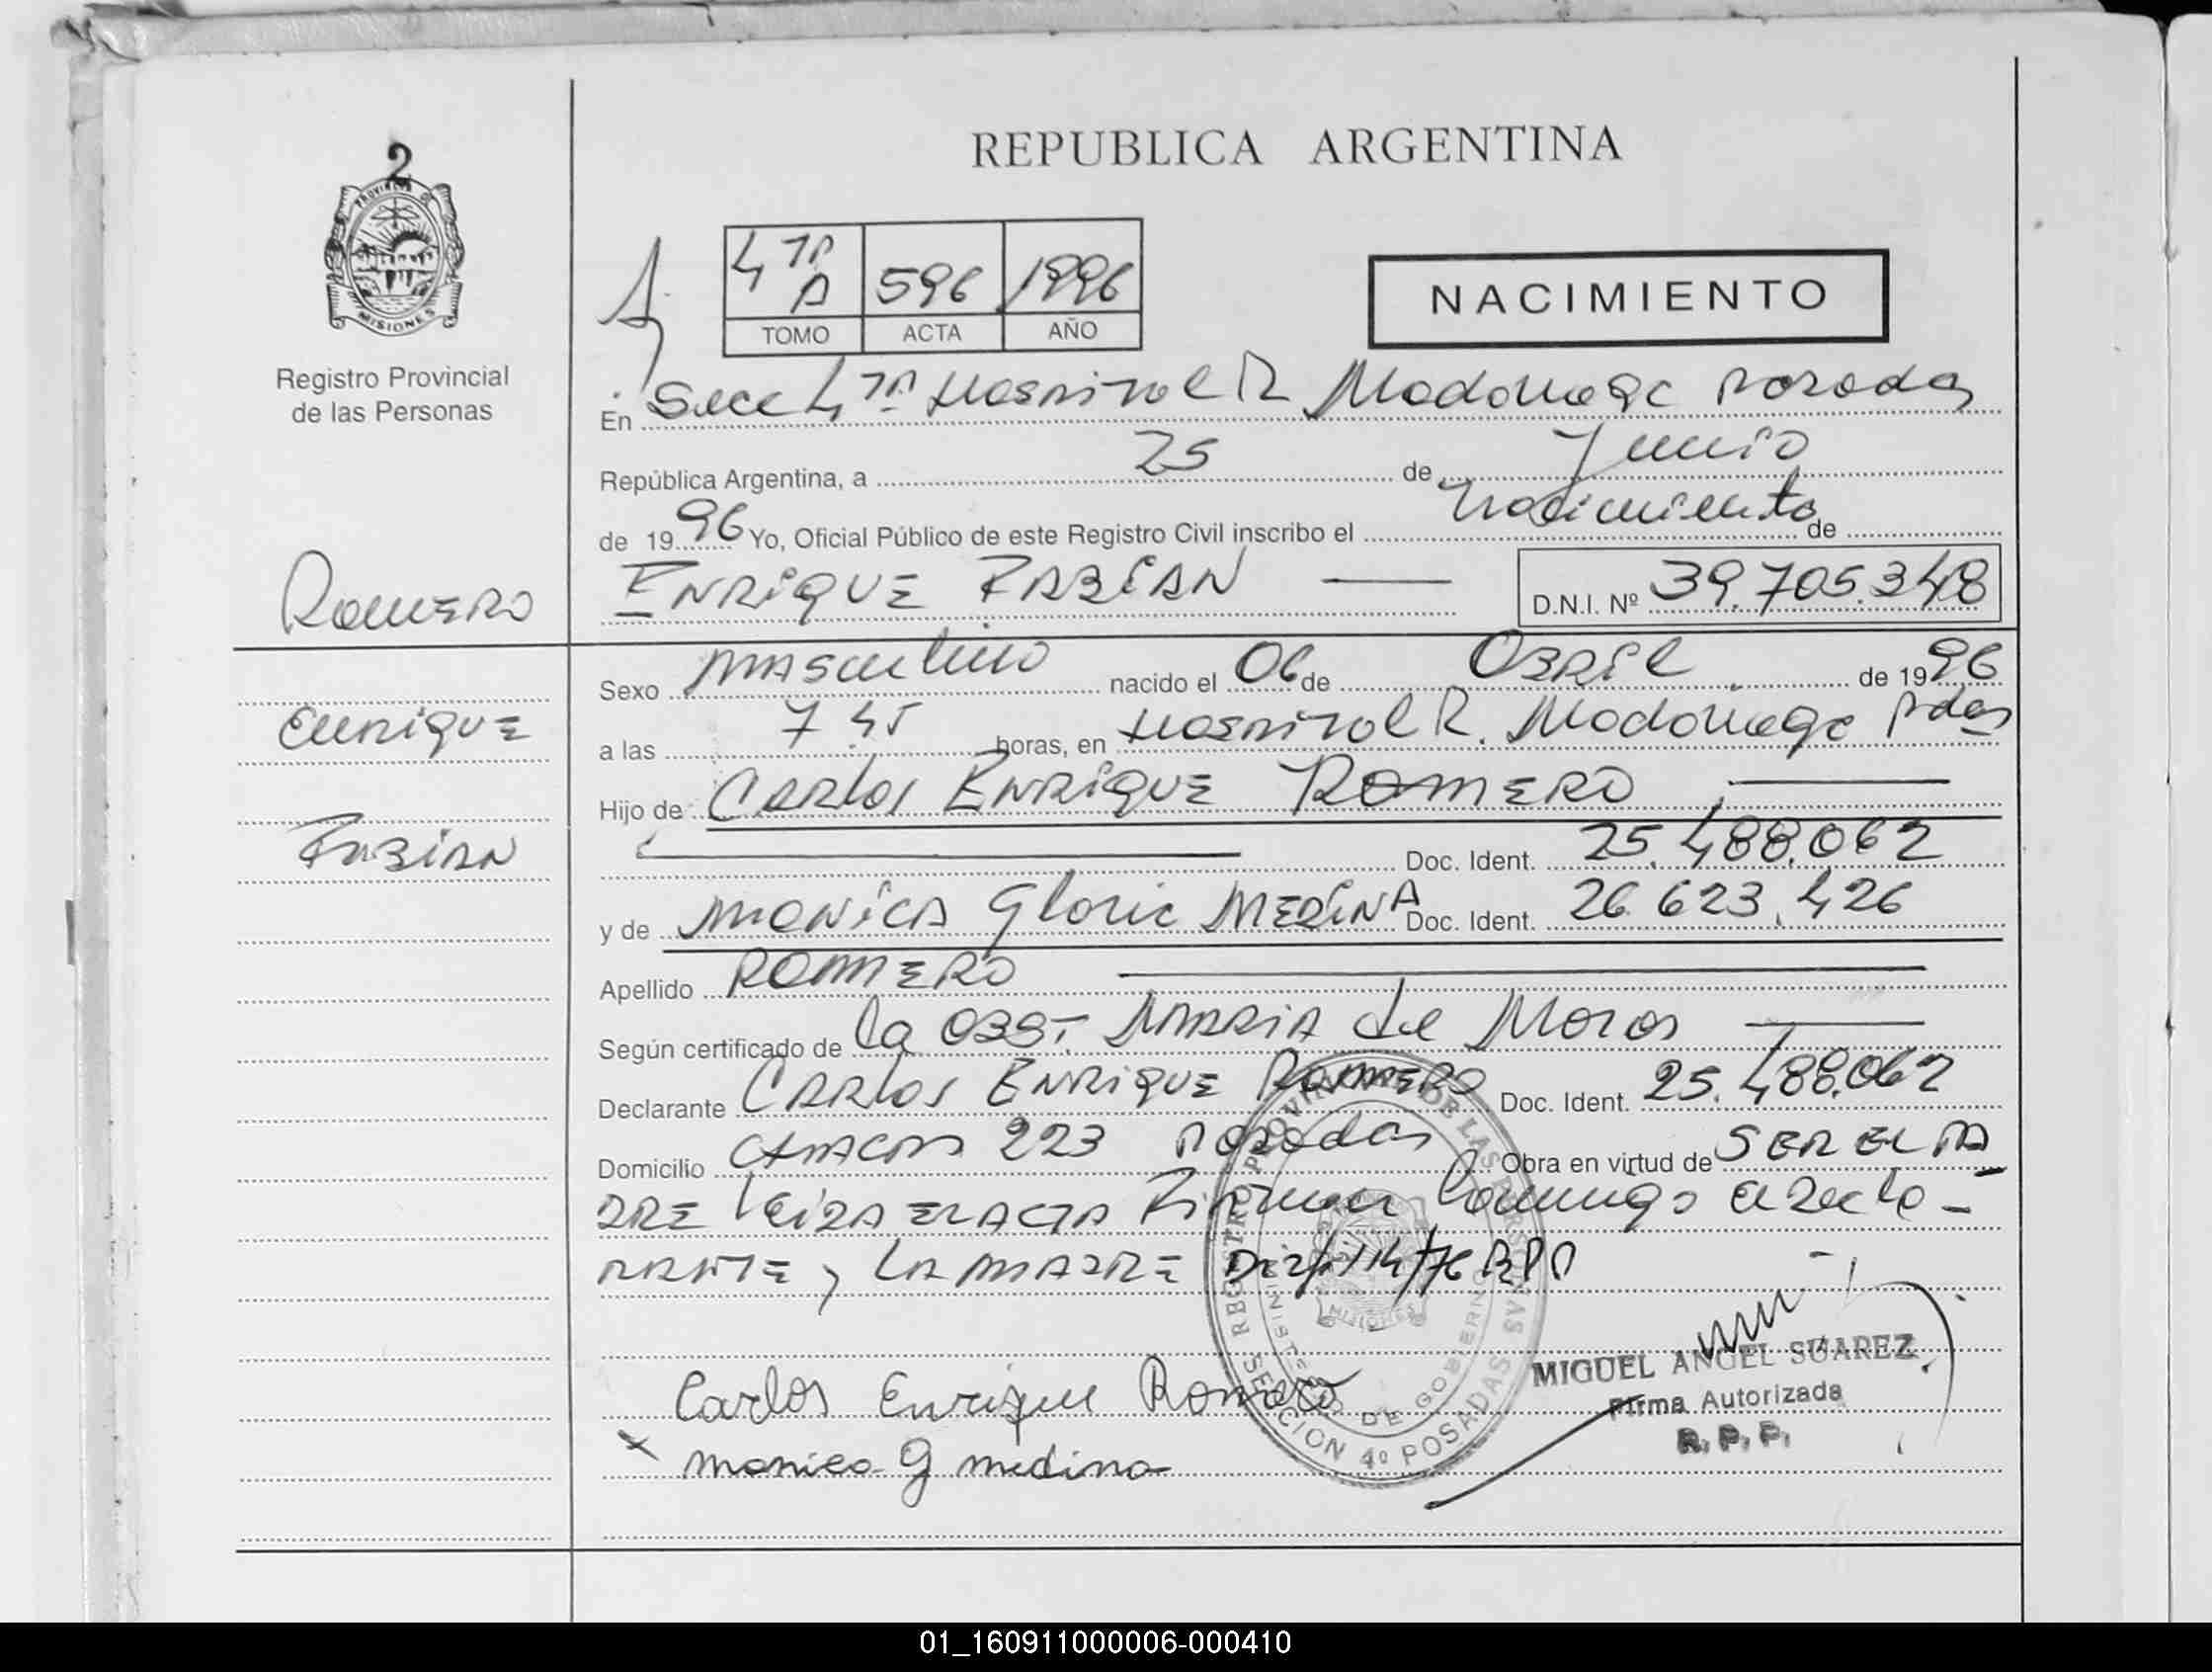 REPUBLICA ARGENTINA
2
PROVINCIA DE
MISIONES
Registro Provincial
de las Personas
4 TA A 596 1996
TOMO ACTA AÑO
NACIMIENTO
En Secc 4 TA Hospital R Madariaga Posadas
República Argentina, a 25 de Junio
de 1996 Yo, Oficial Público de este Registro Civil inscribo el Nacimiento de
ENRIQUE FABIAN D.N.I. Nº 39.705.348
ROMERO
ENRIQUE
FABIAN
Sexo Masculino nacido el 06 de ABRIL de 1996
a las 7 45 horas, en Hospital R. Madariaga Pdas
Hijo de Carlos ENRIQUE ROMERO
Doc. Ident. 25.488.062
y de MONICA Gloria MEDINA Doc. Ident. 26.623.426
Apellido ROMERO
Según certificado de la OBST. MARIA de
Declarante CARLOS ENRIQUE ROMERO Doc. Ident. 25.488.062
Domicilio 223 Posadas Obra en virtud de SER EL PA
DRE Leida EL ACTA Firman Conmigo el Decla-
RANTE y LA MADRE
Carlos Enrique Romero
x monica g medina
MIGUEL ANGEL SUAREZ
Firma Autorizada
R. P. P.
REGISTRO PROVINCIAL DE LAS PERSONAS
MINISTERIO DE GOBIERNO
SECCION 4º POSADAS
01_160911000006-000410